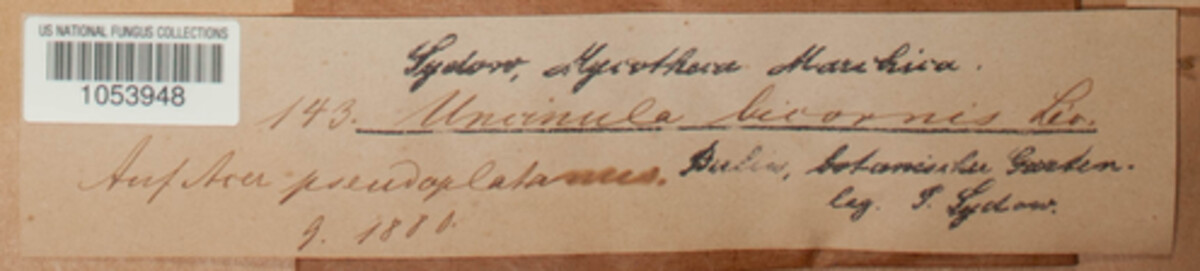 US NATIONAL FUNGUS COLLECTIONS
1053948
Sydow, Mycotheca Marchica.
143. Uncinula bicornis Lév.
Auf Acer pseudoplatanus.
Berlin, botanischer Garten.
leg. P. Sydow.
9. 1880.